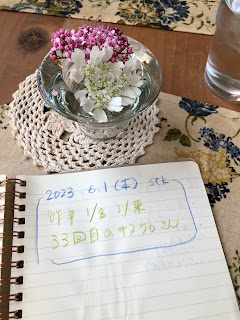 2023 6.1 (木) stk
昨年 1/8 以来
33回目のサプラさん